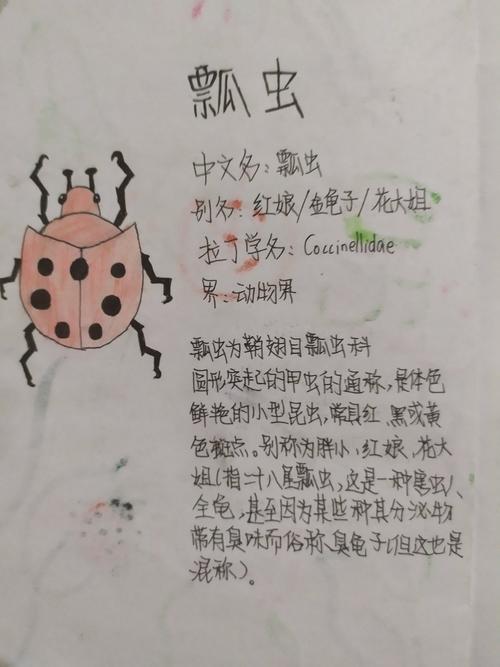 瓢虫
中文名：瓢虫
别名：红娘/金龟子/花大姐
拉丁学名：Coccinellidae
界：动物界
瓢虫为鞘翅目瓢虫科
圆形突起的甲虫的通称，是体色
鲜艳的小型昆虫，常具红、黑或黄
色斑点。别称为胖小、红娘、花大
姐（指二十八星瓢虫，这是一种害虫）、
金龟，甚至因为某些种其分泌物
带有臭味而俗称臭龟子（但这也是
混称）。